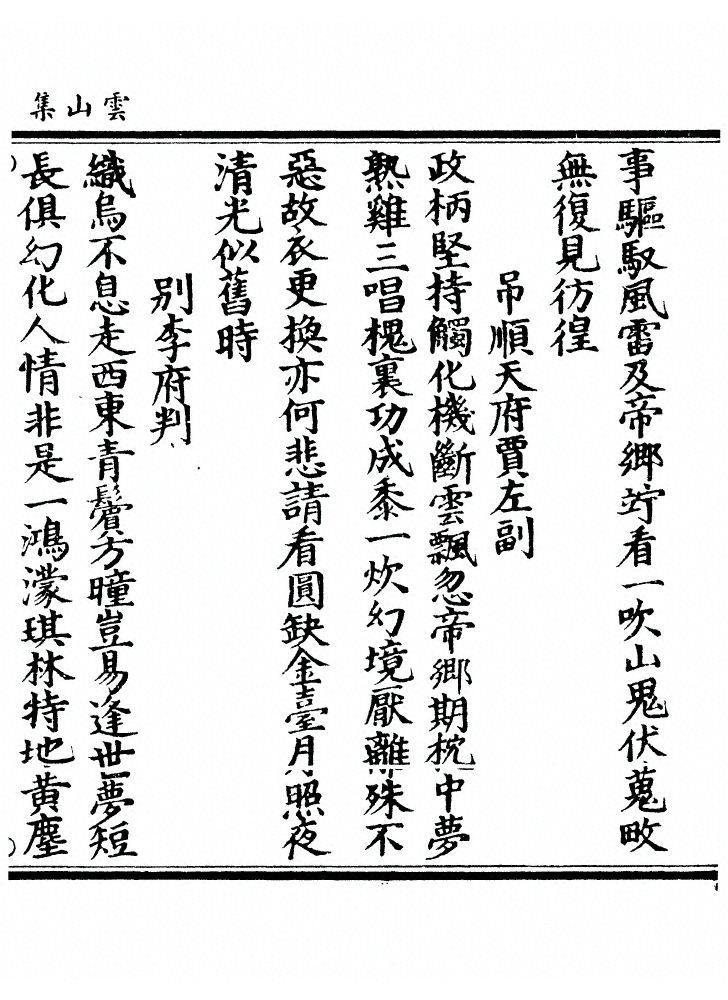 雲山集
事驅馭風雷及帝鄉竚看一吹山鬼伏蒐畋
無復見彷徨
吊順天府賈左副
政柄堅持觸化機斷雲飄忽帝鄉期枕中夢
熟雞三唱槐裏功成黍一炊幻境厭離殊不
惡故衣更換亦何悲請看圓缺金臺月照夜
清光似舊時
別李府判
織烏不息走西東青鬢方瞳豈易逢世夢短
長俱幻化人情非是一鴻濛琪林特地黃塵